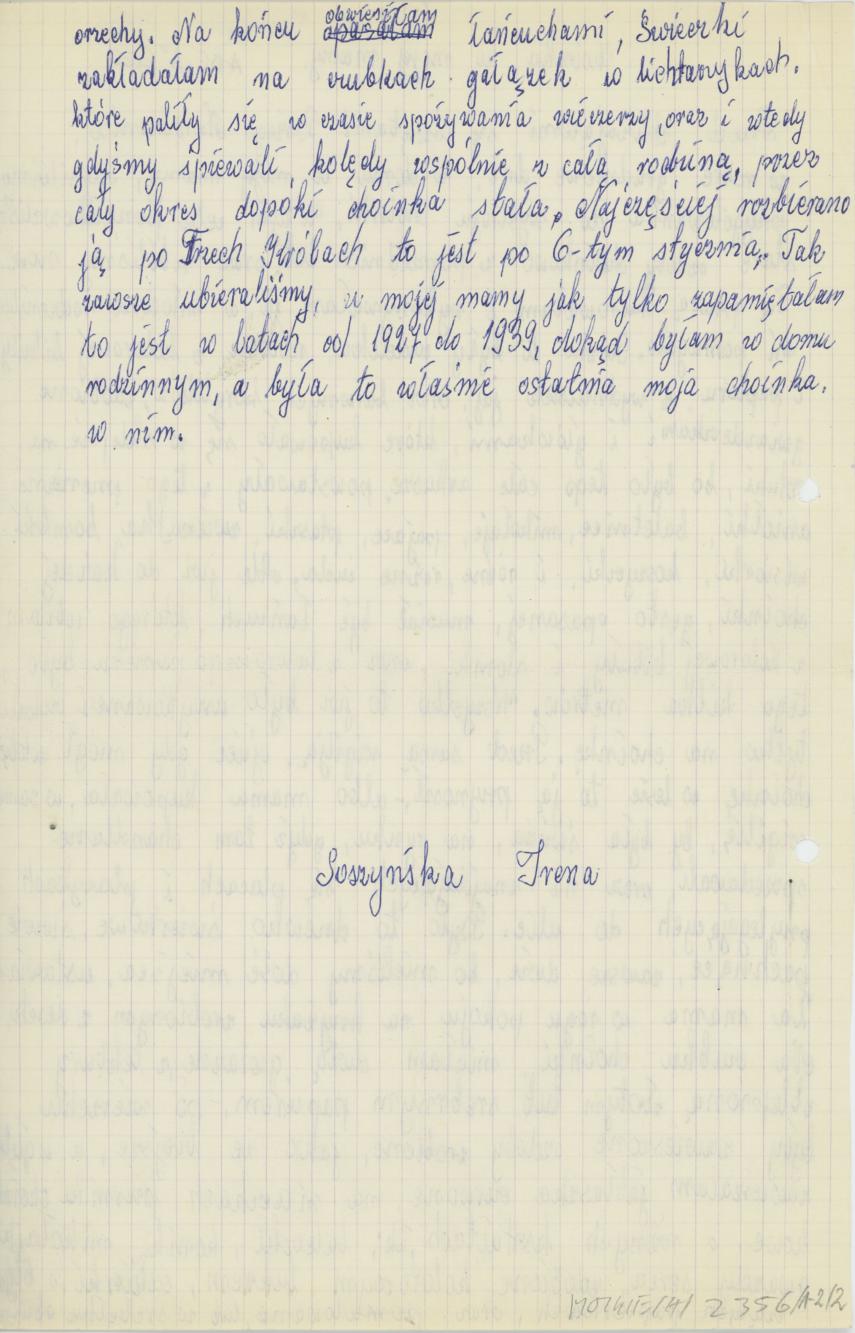 obwiesiłam
orzechy. Na końcu opasałam łańcuchami, Świeczki
zakładałam na czubkach gałązek w lichtarzykach.
które paliły się w czasie spożywania wieczerzy, oraz i wtedy
gdyśmy śpiewali kolędy wspólnie z całą rodziną, przez
cały okres dopóki choinka stała. Najczęściej rozbierano
ją po Trzech Królach to jest po 6-tym stycznia. Tak
zawsze ubieraliśmy, u mojej mamy jak tylko zapamiętałam
to jest w latach od 1927 do 1939, dokąd byłam w domu
rodzinnym, a była to właśnie ostatnia moja choinka.
w nim.
Soszyńska Irena
2356/A-2/2